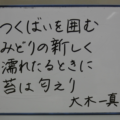 つくばいを囲む
みどりの新しく
濡れたるときに
苔は匂えり
大木一真